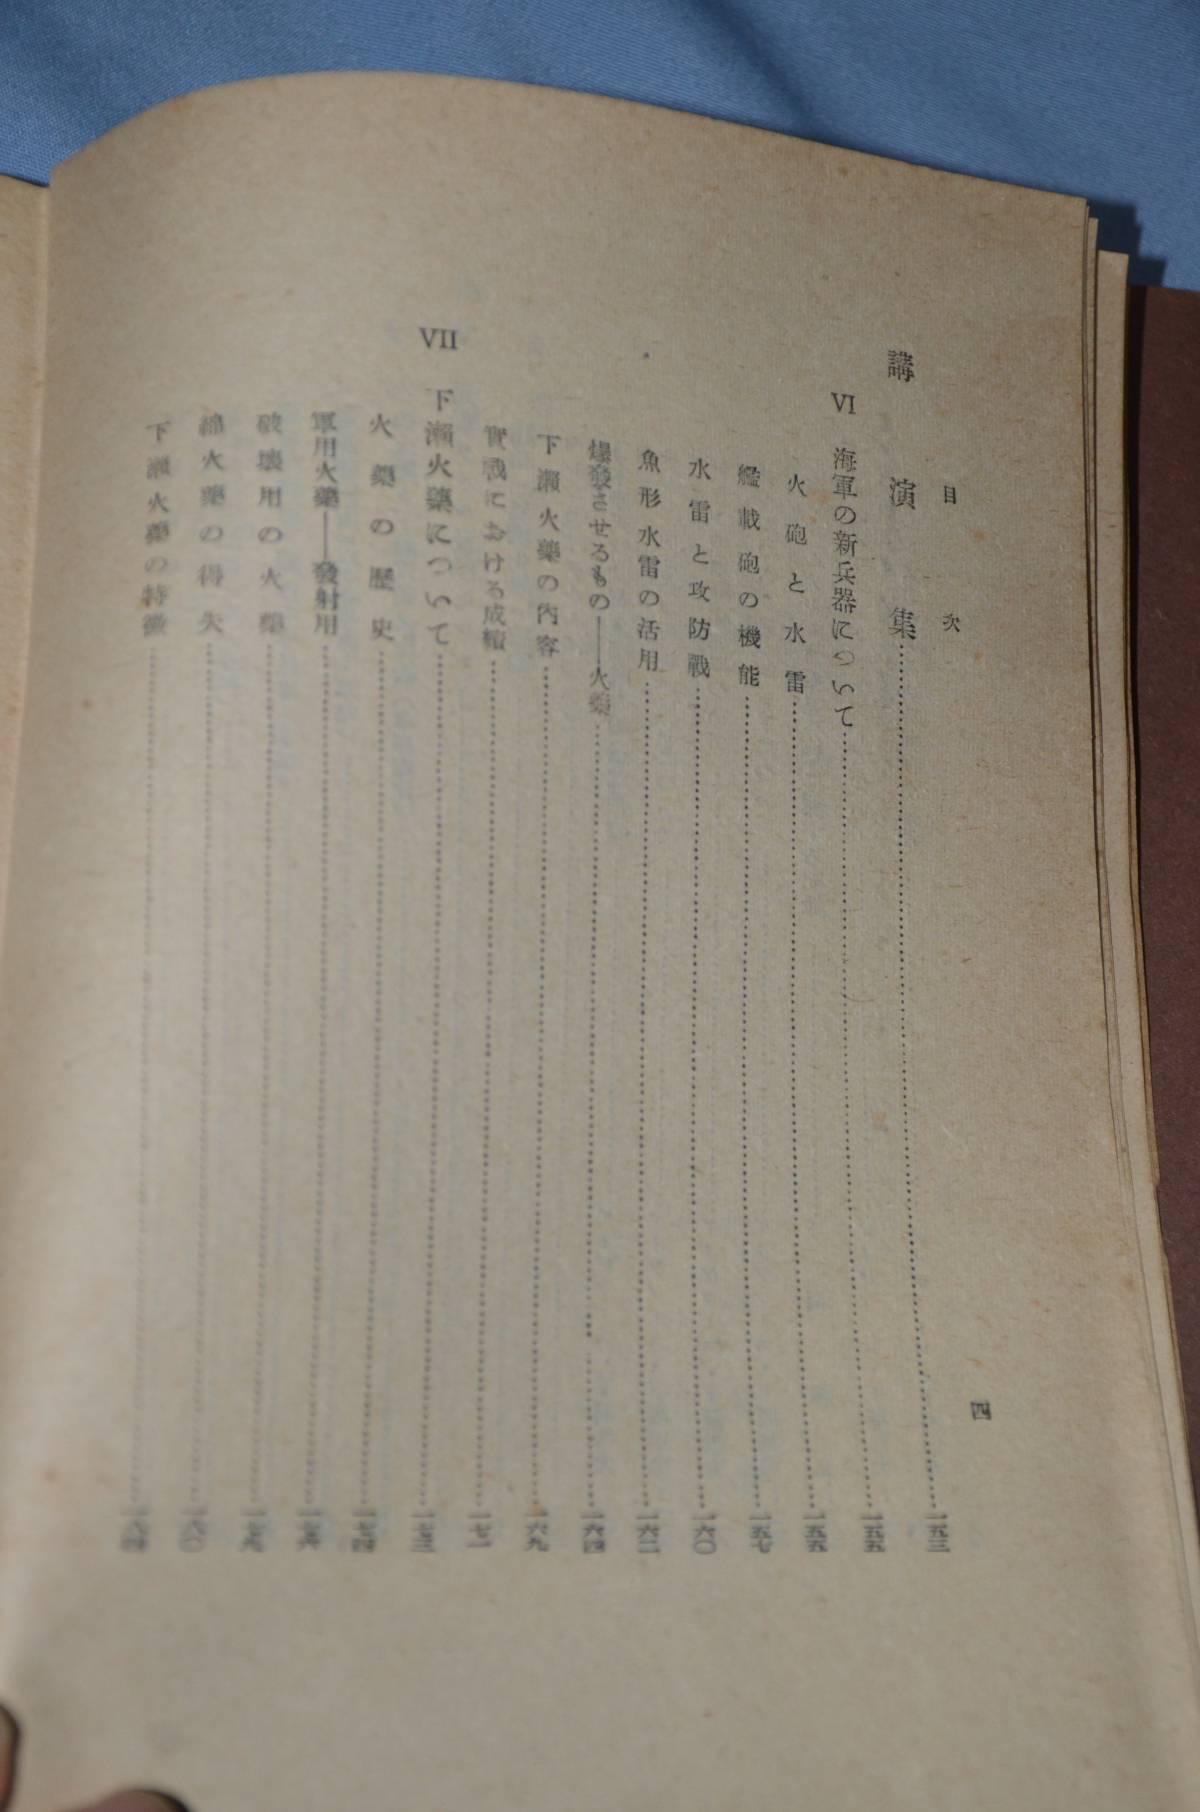 目次
四
講演集……一五三
VI 海軍の新兵器について……一五五
火砲と水雷……一五五
艦載砲の機能……一五七
水雷と攻防戰……一六〇
魚形水雷の活用……一六二
爆發させるもの――火藥……一六四
下瀨火藥の內容……一六九
實戰における成績……一七一
VII 下瀨火藥について……一七三
火藥の歷史……一七四
軍用火藥――發射用……
破壞用の火藥……
綿火藥の得失……一八〇
下瀨火藥の特徵……一八四